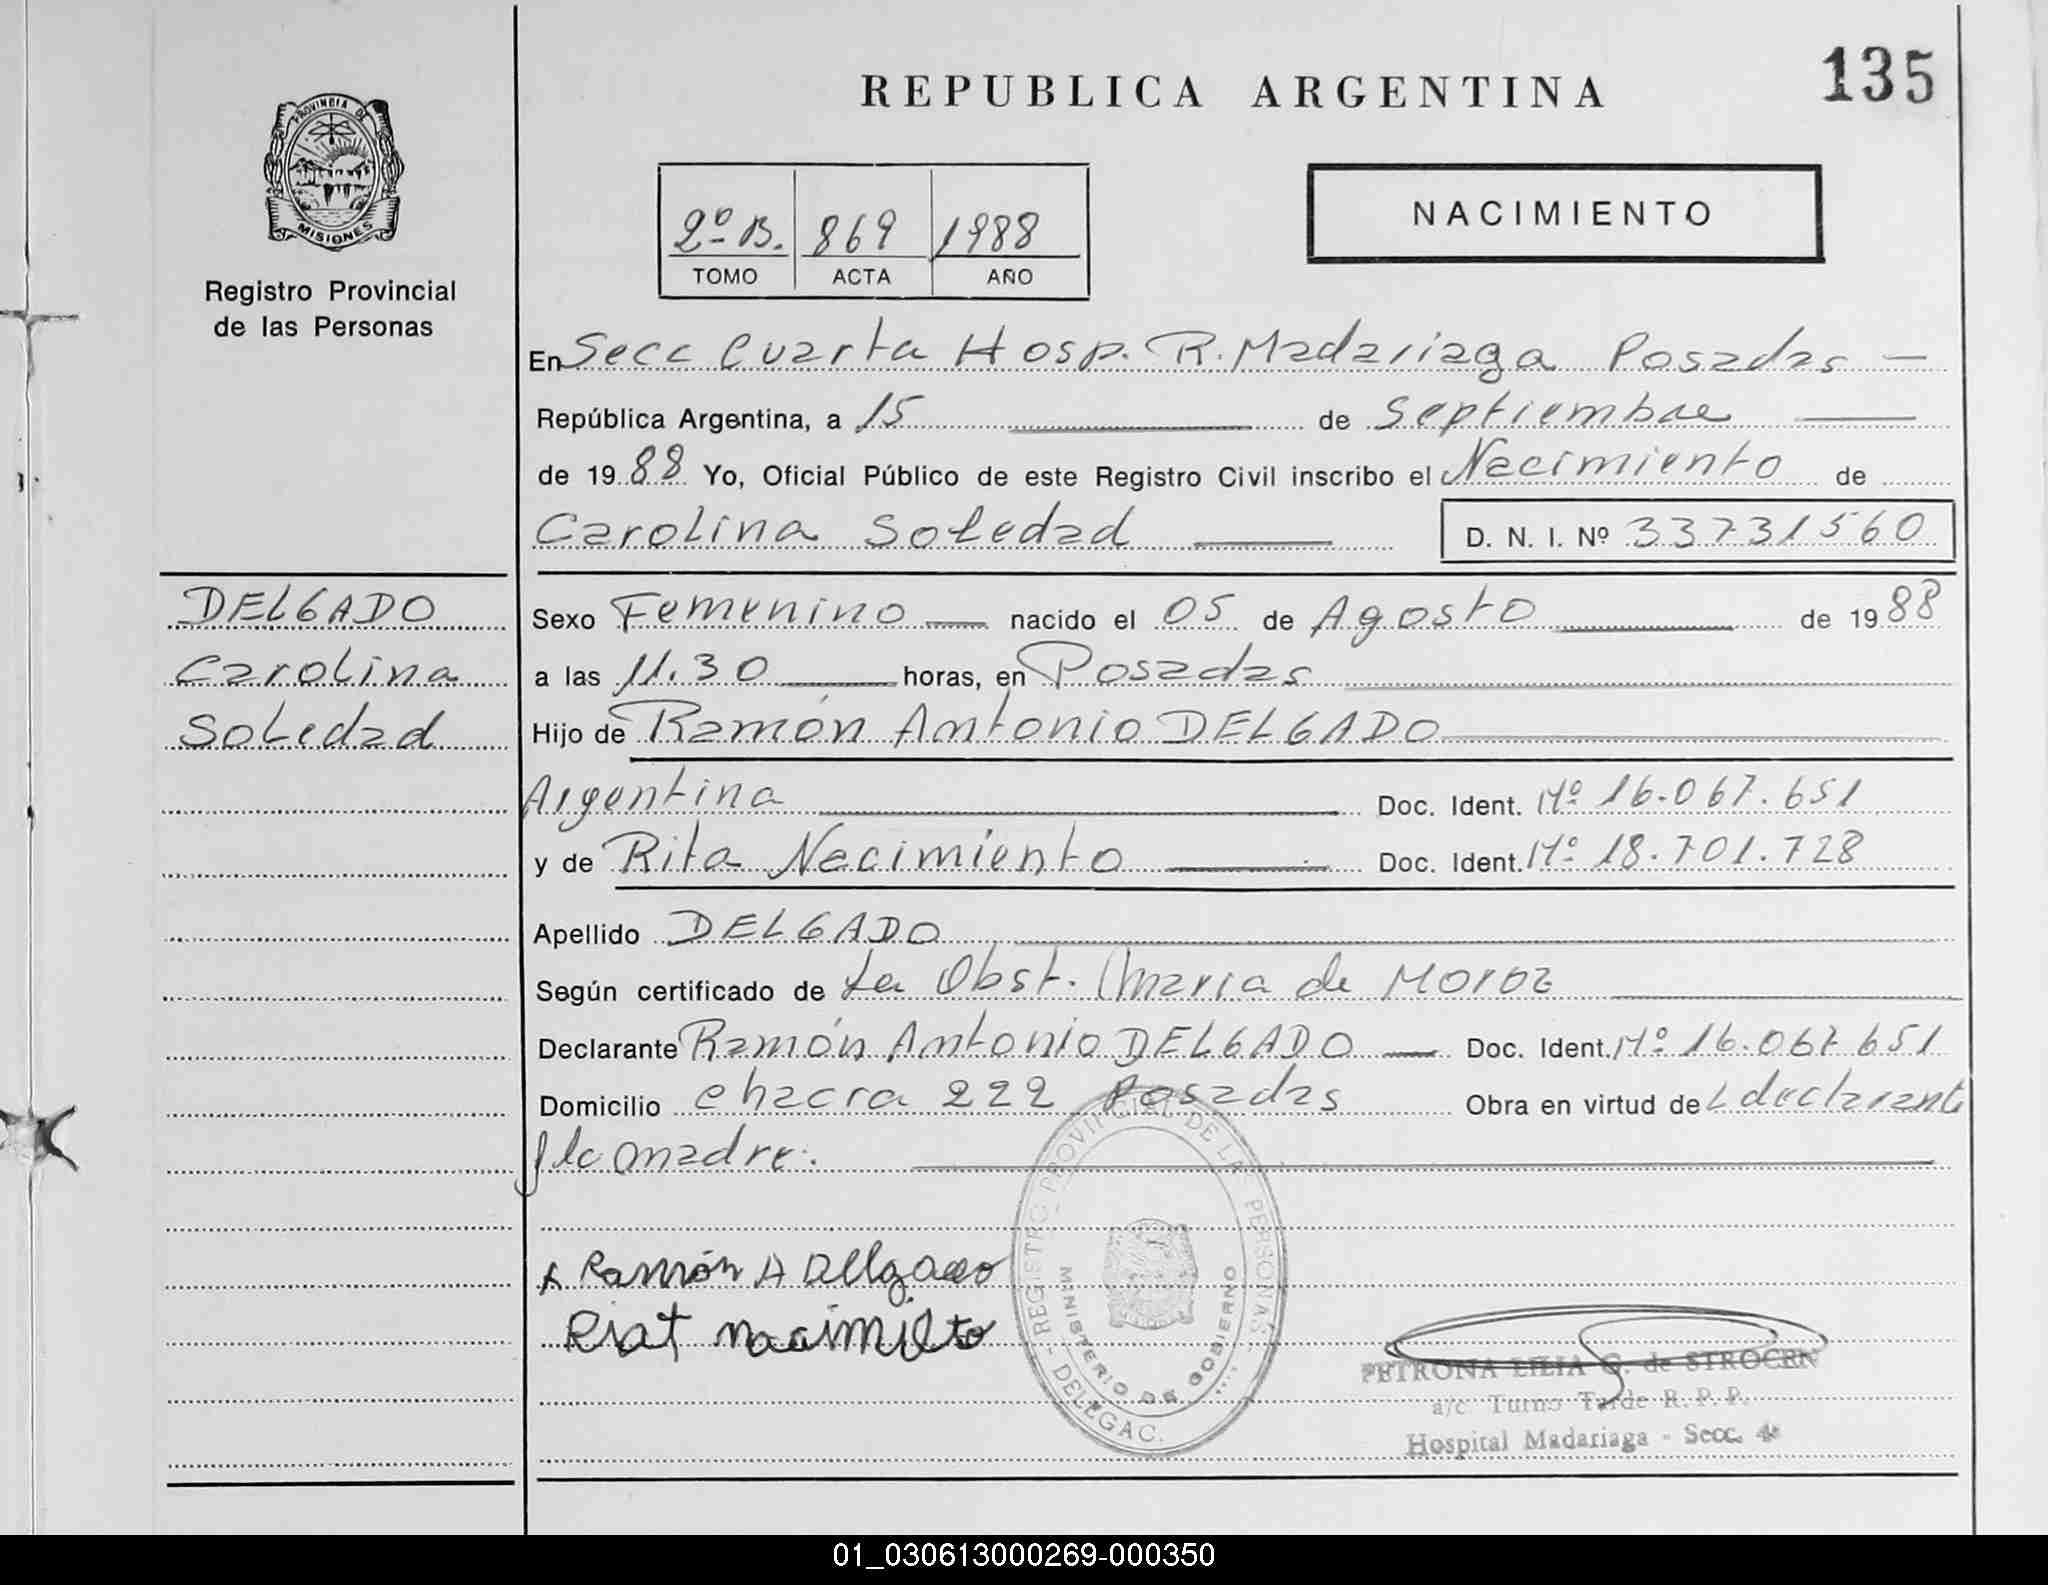 REPUBLICA ARGENTINA
135
PROVINCIA DE
MISIONES
Registro Provincial
de las Personas
2º B. 869 1988
TOMO ACTA AÑO
NACIMIENTO
En Secc Cuarta Hosp. R. Madariaga Posadas —
República Argentina, a 15 de Septiembre
de 1988 Yo, Oficial Público de este Registro Civil inscribo el Nacimiento de
Carolina Soledad D. N. I. Nº 33731560
DELGADO
Carolina
Soledad
Sexo Femenino nacido el 05 de Agosto de 1988
a las 11.30 horas, en Posadas
Hijo de Ramón Antonio DELGADO
Argentina Doc. Ident. Mº 16.067.651
y de Rita Nacimiento Doc. Ident. Mº 18.701.728
Apellido DELGADO
Según certificado de La Obst. Maria de Moroz
Declarante Ramón Antonio DELGADO Doc. Ident. Mº 16.067.651
Domicilio Chacra 222 Posadas Obra en virtud de L declarante
y la madre.
Ramón A Delgado
Riat nacimilto
REGISTRO PROVINCIAL DE LAS PERSONAS
MINISTERIO DE GOBIERNO
DELEGAC.
PETRONA LILIA G. de STROCEN
a/c Turno Tarde R. P. P.
Hospital Madariaga - Secc. 4ª
01_030613000269-000350